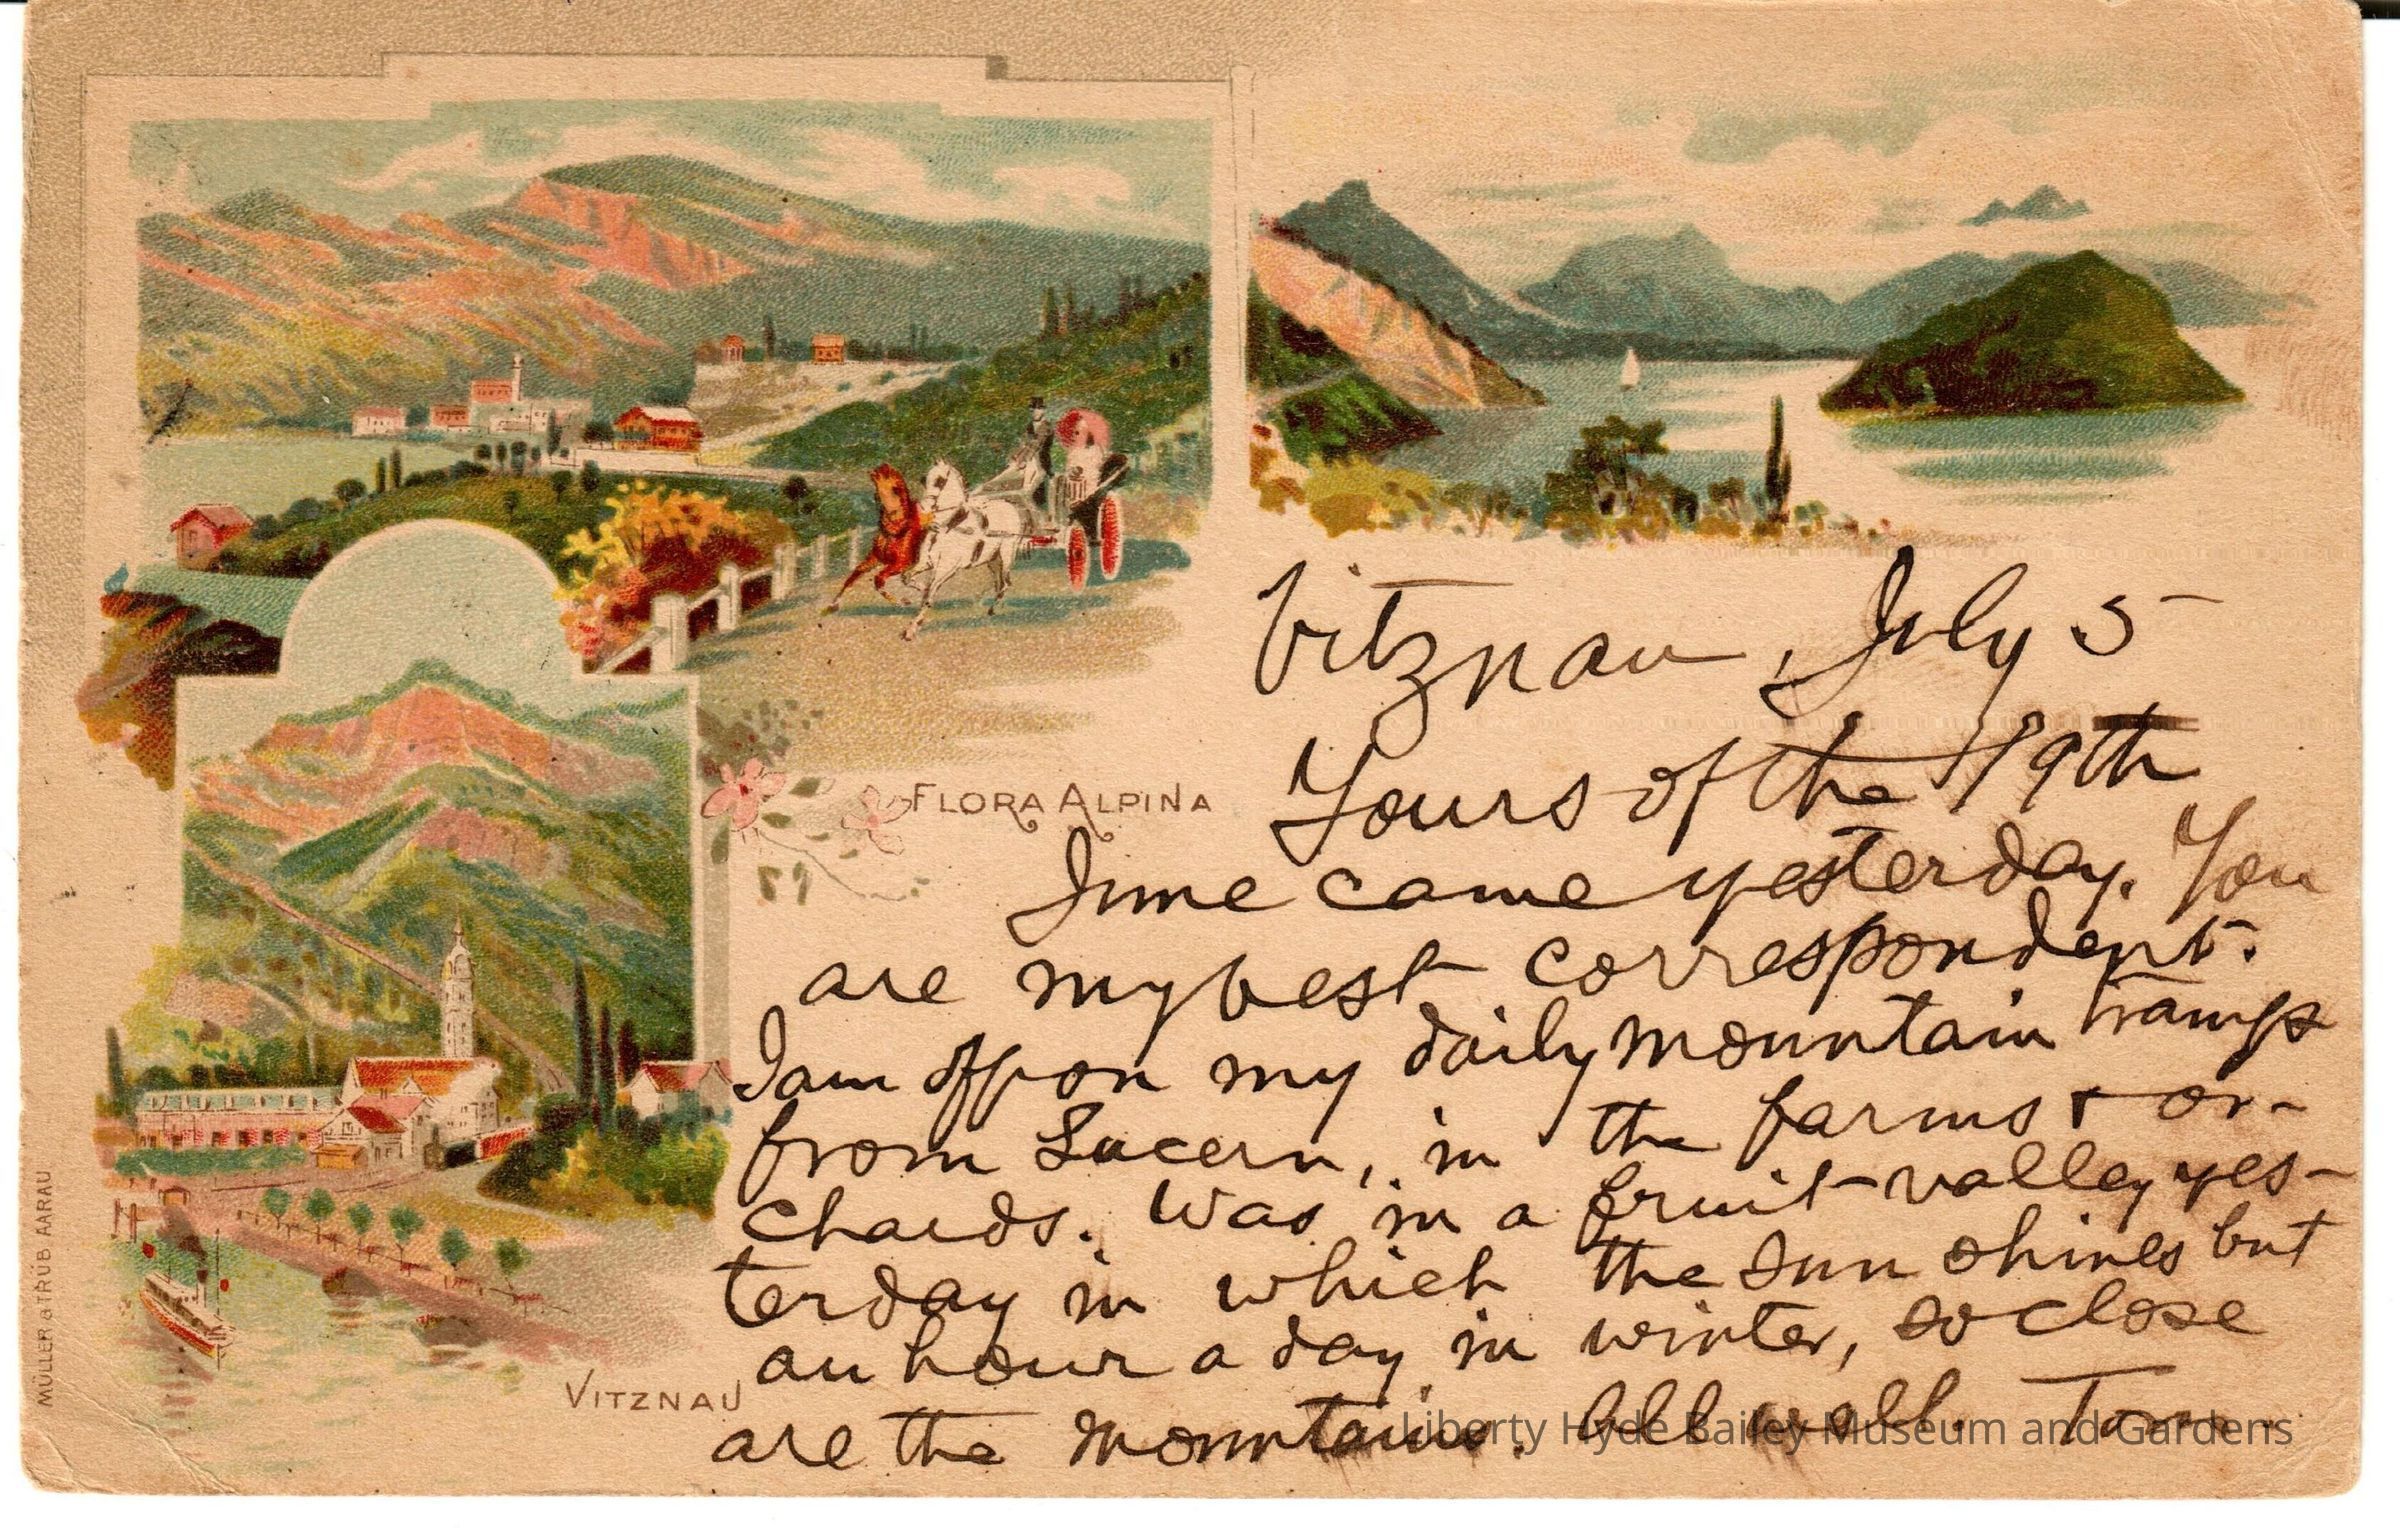 Vitznau, July 5 –
Yours of the 19th
FLORA ALPINA
June came yesterday. You
are my best correspondent.
I am off on my daily mountain tramps
from Lucern, in the farms + or-
chards. Was in a fruit-valley yes-
terday in which the sun shines but
an hour a day in winter, so close
are the mountains. All well.
VITZNAU
MÜLLER & TRÜB AARAU
Liberty Hyde Bailey Museum and Gardens